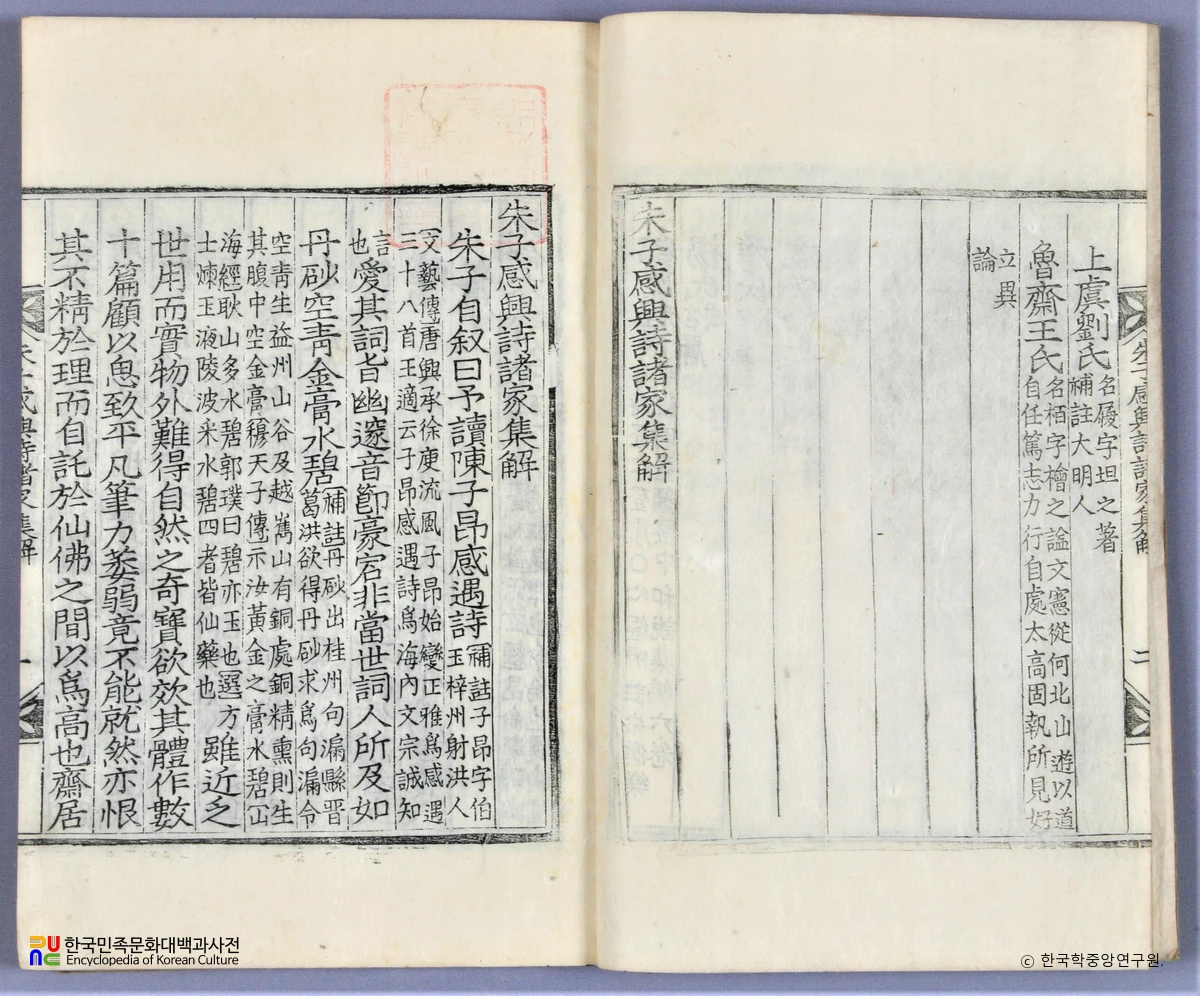 朱子感興詩諸家集解 二
上虞劉氏
名履字坦之著
補註大明人
魯齋王氏
名栢字檜之謚文憲從何北山遊以道
自任篤志力行自處太高固執所見好
立異
論
朱子感興詩諸家集解
朱子感興詩諸家集解
朱子自叙曰予讀陳子昂感遇詩
補註子昂字伯
玉梓州射洪人
文藝傳唐興承徐庾流風子昂始變正雅爲感遇
三十八首王適云子昂感遇詩爲海內文宗誠知
言
也
愛其詞旨幽邃音節豪宕非當世詞人所及如
丹砂空靑金膏水碧
補註丹砂出桂州句漏縣晋
葛洪欲得丹砂求爲句漏令
空靑生益州山谷及越嶲山有銅處銅精熏則生
其腹中空金膏穆天子傳示汝黃金之膏水碧山
海經耿山多水碧郭璞曰碧亦玉也選方
士煉玉液陵波采水碧四者皆仙藥也
雖近乏
世用而實物外難得自然之奇寶欲效其體作數
十篇顧以思致平凡筆力萎弱竟不能就然亦恨
其不精於理而自託於仙佛之間以爲高也齋居
朱子感興詩諸家集解 一
한국민족문화대백과사전
Encyclopedia of Korean Culture
ⓒ 한국학중앙연구원.